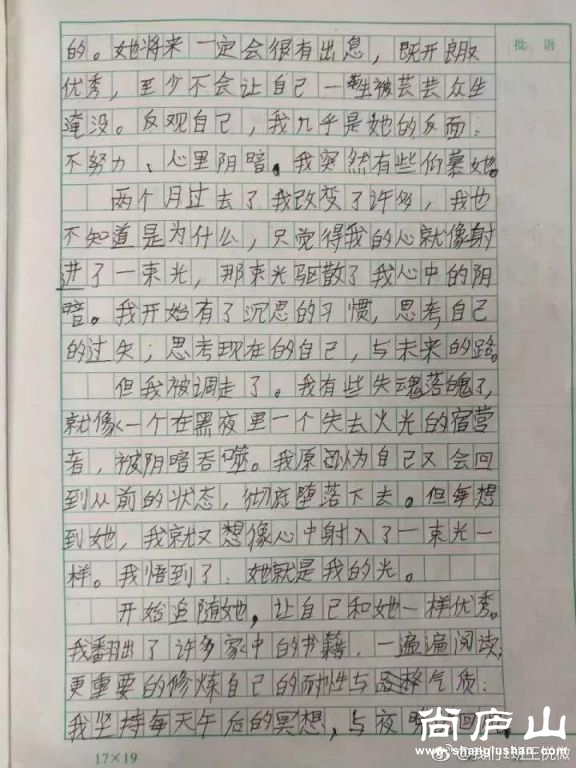 批 语
的。她将来一定会很有出息，既开朗又
优秀，至少不会让自己一生被芸芸众生
淹没。反观自己，我几乎是她的反面：
不努力、心里阴暗。我突然有些仰慕她。
两个月过去了我改变了许多，我也
不知道是为什么，只觉得我的心就像射
进了一束光，那束光驱散了我心中的阴
暗。我开始有了沉思的习惯，思考自己
的过失；思考现在的自己，与未来的路。
但我被调走了。我有些失魂落魄了，
就像一个在黑夜里一个失去火光的宿营
者，被阴暗吞噬。我原以为自己又会回
到从前的状态，彻底堕落下去。但每想
到她，我就又想像心中射入了一束光一
样。我悟到了：她就是我的光。
开始追随她，让自己和她一样优秀。
我翻出了许多家中的书籍，一遍遍阅读，
更重要的修炼自己的耐性与品格气质：
我坚持每天午后的冥想，与夜晚
17×19
尚庐山
www.shanglushan.com
@我们1班王悦微